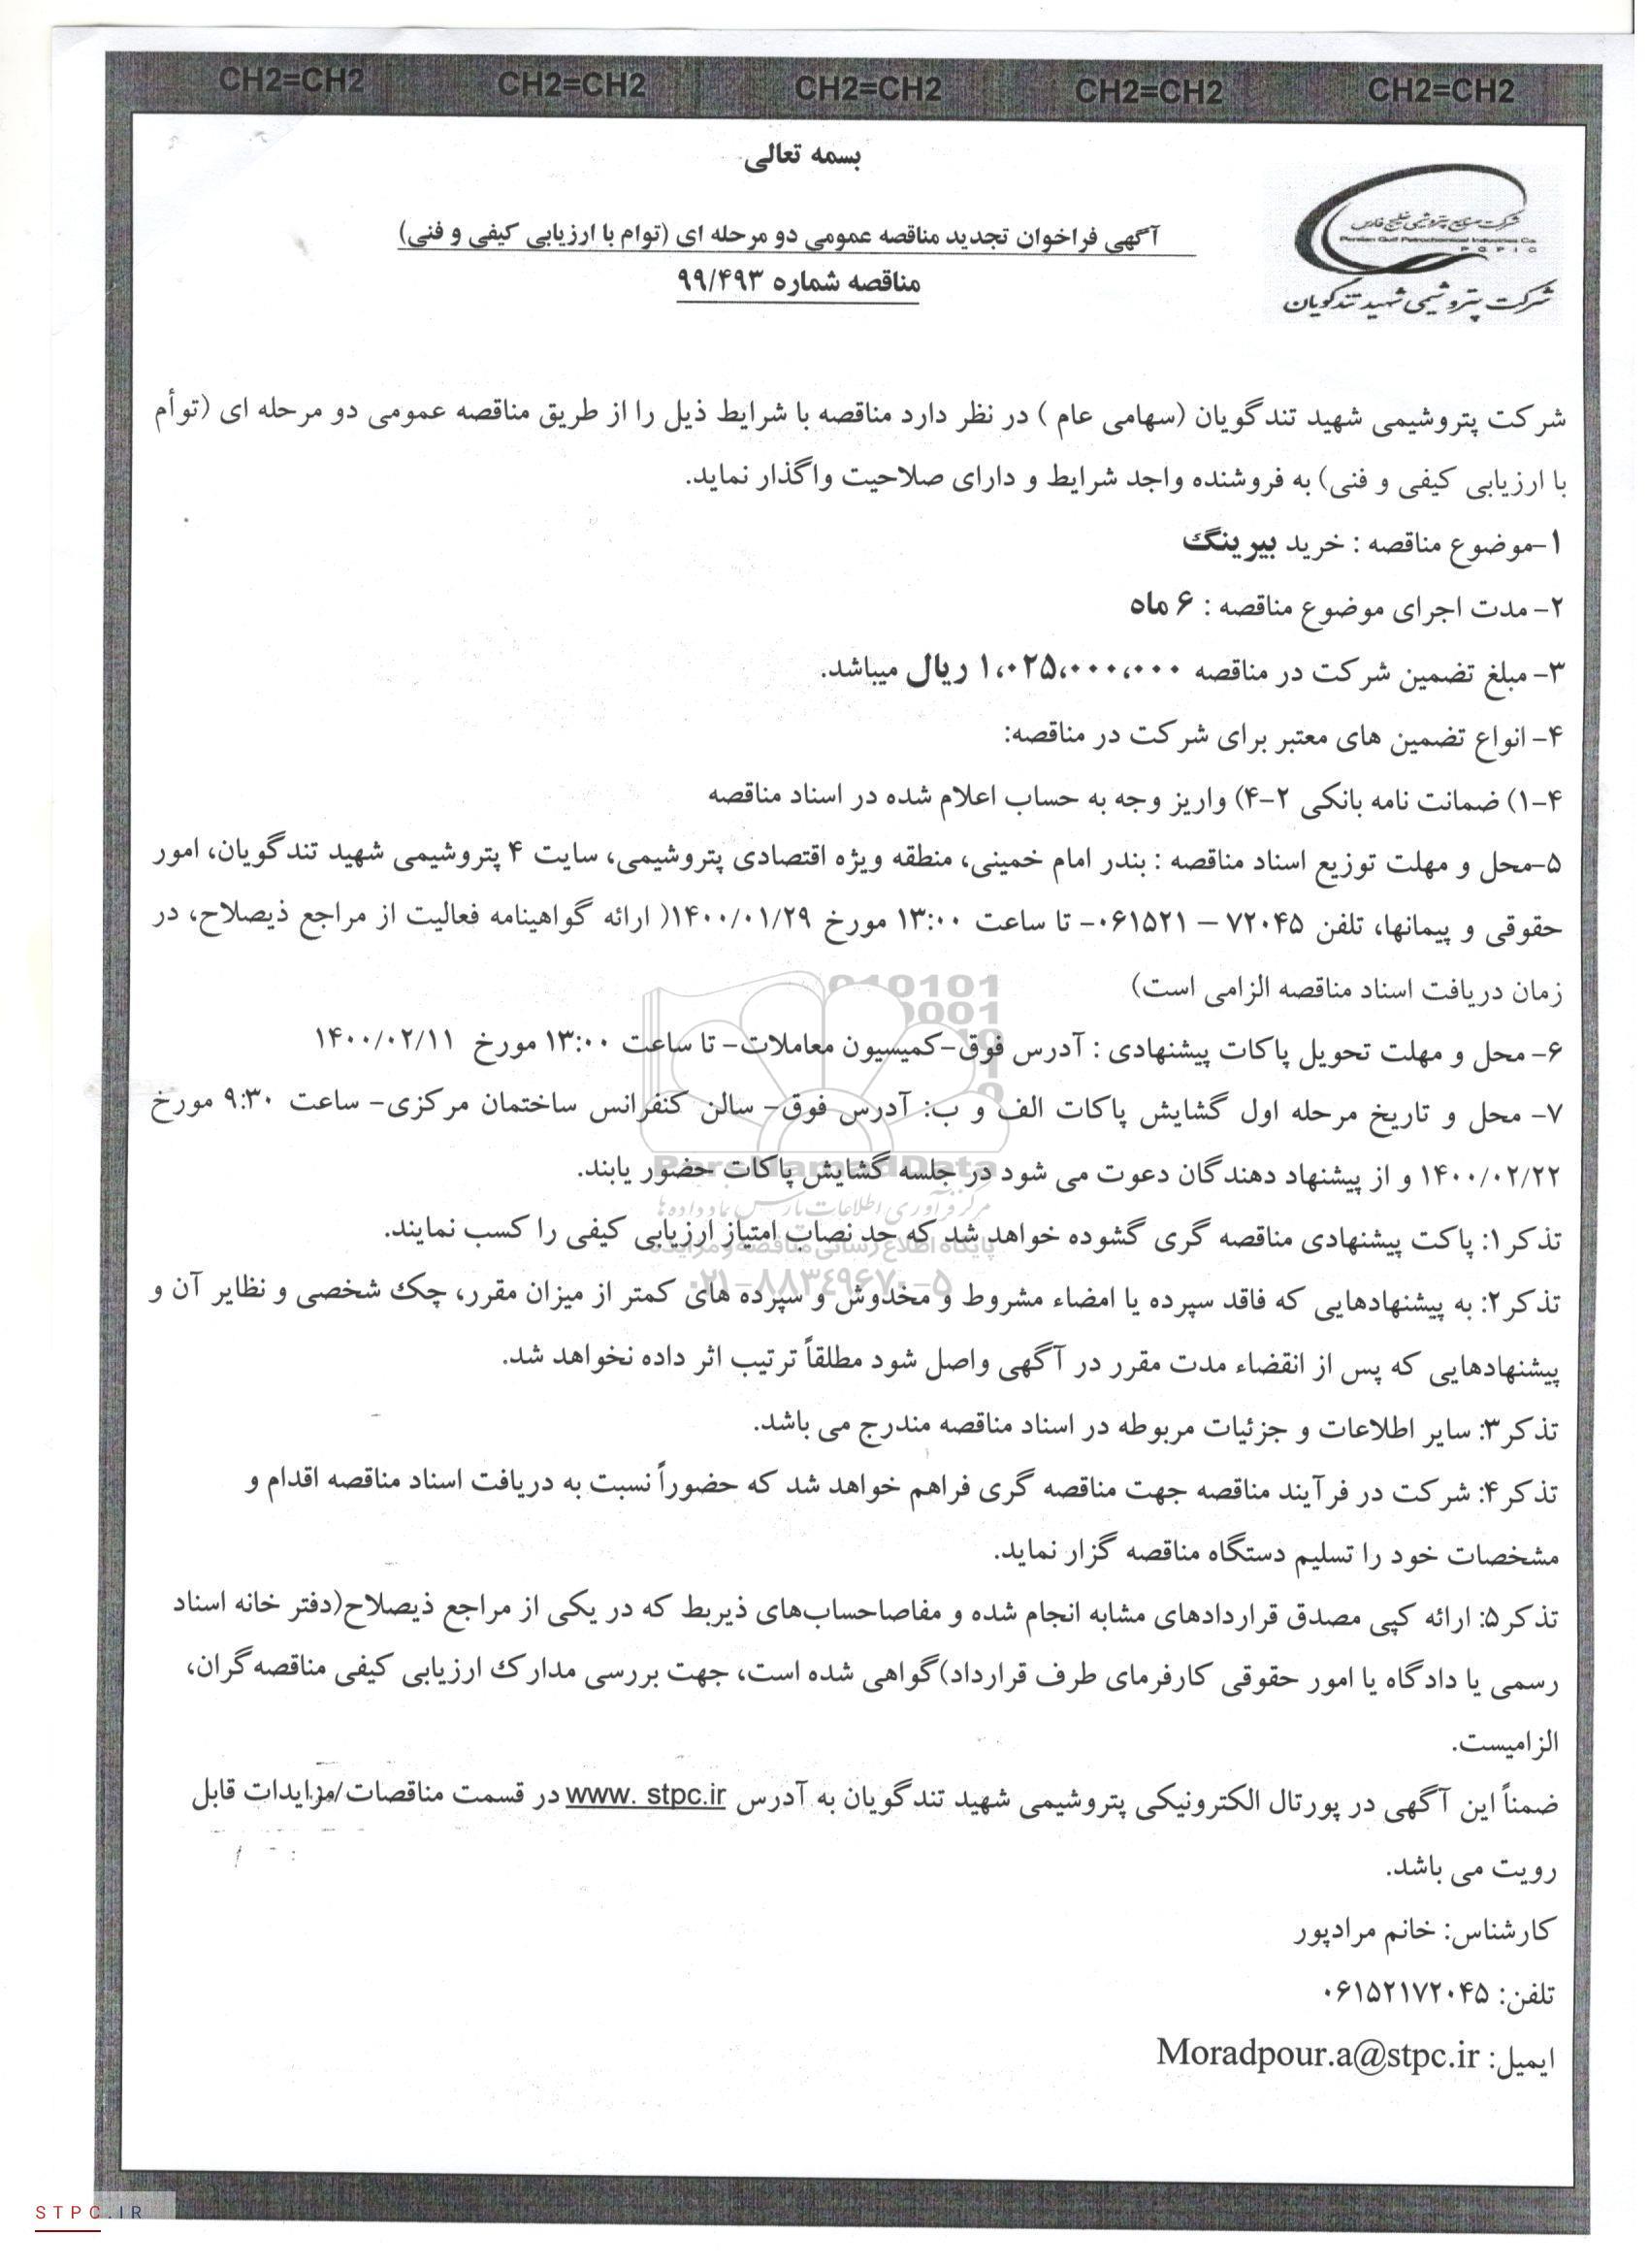 CH2=CH2 CH2=CH2 CH2=CH2 CH2=CH2 CH2=CH2
بسمه تعالی
شرکت صنایع پتروشیمی خلیج فارس
Persian Gulf Petrochemical Industries Co.
PGPIC
شرکت پتروشیمی شهید تندگویان
آگهی فراخوان تجدید مناقصه عمومی دو مرحله ای (توام با ارزیابی کیفی و فنی)
مناقصه شماره ۹۹/۴۹۳
شرکت پتروشیمی شهید تندگویان (سهامی عام ) در نظر دارد مناقصه با شرایط ذیل را از طریق مناقصه عمومی دو مرحله ای (توأم
با ارزیابی کیفی و فنی) به فروشنده واجد شرایط و دارای صلاحیت واگذار نماید.
۱-موضوع مناقصه : خرید بیرینگ
۲- مدت اجرای موضوع مناقصه : ۶ ماه
۳- مبلغ تضمین شرکت در مناقصه ۱،۰۲۵،۰۰۰،۰۰۰ ریال میباشد.
۴- انواع تضمین های معتبر برای شرکت در مناقصه:
۴-۱) ضمانت نامه بانکی ۲-۴) واریز وجه به حساب اعلام شده در اسناد مناقصه
۵-محل و مهلت توزیع اسناد مناقصه : بندر امام خمینی، منطقه ویژه اقتصادی پتروشیمی، سایت ۴ پتروشیمی شهید تندگویان، امور
حقوقی و پیمانها، تلفن ۷۲۰۴۵ – ۰۶۱۵۲۱- تا ساعت ۱۳:۰۰ مورخ ۱۴۰۰/۰۱/۲۹( ارائه گواهینامه فعالیت از مراجع ذیصلاح، در
زمان دریافت اسناد مناقصه الزامی است)
۶- محل و مهلت تحویل پاکات پیشنهادی : آدرس فوق-کمیسیون معاملات- تا ساعت ۱۳:۰۰ مورخ ۱۴۰۰/۰۲/۱۱
۷- محل و تاریخ مرحله اول گشایش پاکات الف و ب: آدرس فوق- سالن کنفرانس ساختمان مرکزی- ساعت ۹:۳۰ مورخ
۱۴۰۰/۰۲/۲۲ و از پیشنهاد دهندگان دعوت می شود در جلسه گشایش پاکات حضور یابند.
ParsNamadData
مرکز فرآوری اطلاعات پارس نماد داده ها
تذکر۱: پاکت پیشنهادی مناقصه گری گشوده خواهد شد که حد نصاب امتیاز ارزیابی کیفی را کسب نمایند.
پایگاه اطلاع رسانی مناقصه و مزایده
۰۲۱-۸۸۳۴۹۶۷۰-۵
تذکر۲: به پیشنهادهایی که فاقد سپرده یا امضاء مشروط و مخدوش و سپرده های کمتر از میزان مقرر، چک شخصی و نظایر آن و
پیشنهادهایی که پس از انقضاء مدت مقرر در آگهی واصل شود مطلقاً ترتیب اثر داده نخواهد شد.
تذکر۳: سایر اطلاعات و جزئیات مربوطه در اسناد مناقصه مندرج می باشد.
تذکر۴: شرکت در فرآیند مناقصه جهت مناقصه گری فراهم خواهد شد که حضوراً نسبت به دریافت اسناد مناقصه اقدام و
مشخصات خود را تسلیم دستگاه مناقصه گزار نماید.
تذکر۵: ارائه کپی مصدق قراردادهای مشابه انجام شده و مفاصاحساب‌های ذیربط که در یکی از مراجع ذیصلاح(دفتر خانه اسناد
رسمی یا دادگاه یا امور حقوقی کارفرمای طرف قرارداد)گواهی شده است، جهت بررسی مدارک ارزیابی کیفی مناقصه‌گران،
الزامیست.
ضمناً این آگهی در پورتال الکترونیکی پتروشیمی شهید تندگویان به آدرس www. stpc.ir در قسمت مناقصات/مزایدات قابل
رویت می باشد.
کارشناس: خانم مرادپور
تلفن: ۰۶۱۵۲۱۷۲۰۴۵
ایمیل: Moradpour.a@stpc.ir
STPC.IR